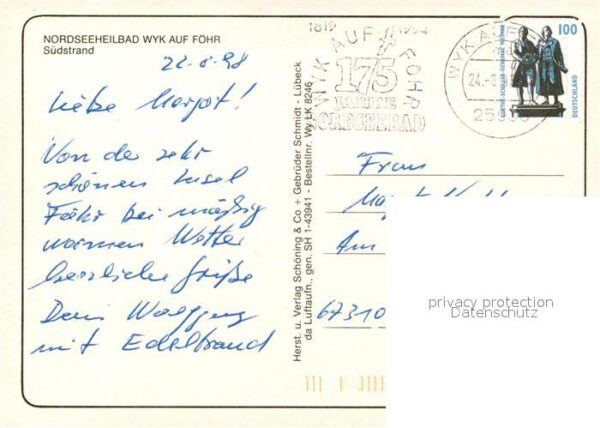 NORDSEEHEILBAD WYK AUF FÖHR
Südstrand
22-8-98
Liebe Margot!
Von der sehr
schönen Insel
Föhr bei mäßig
warmen Wetter
herzliche Grüße
Dein Wolfgang
mit Edeltraud
Herst. u. Verlag Schöning & Co + Gebrüder Schmidt - Lübeck
da Luftaufn., gen. SH 1-43941 - Bestellnr. Wy LK 8246
1819 1994
WYK AUF FÖHR
175
JAHRE
NORDSEEBAD
WYK AUF
24.-8
25938
100
DEUTSCHLAND
Frau
Am
67310
privacy protection
Datenschutz